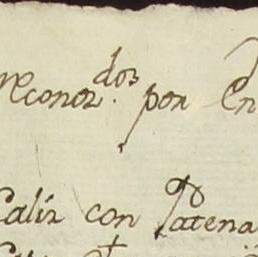 reconoz.dos por En
Caliz con Patena